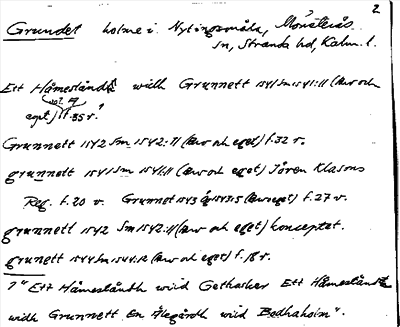 2
Grundet holme i Nytingsmåla, Mönsterås
sn, Stranda hd, Kalm. l.
Ett Håmeståndh widh Grunnett 1541 Sm 1541:11 (æw och
eget) f. 35 r.
Grunnett 1542 Sm 1542:11 (æw och eget) f. 32 r.
grunnett 1541 Sm 1541:11 (æw och eget) Jören Klasons
Reg. f. 20 v. Grunnet 1543 f. 27 v.
grunett 1542 Sm 1542:4 (æw och eget) konceptet.
grunett 1544 Sm 1544:12 (æw och eget) f. 18 r.
7 "Ett Håmeståndh wiid Gethasker Ett Håmeståndh
widh Grunnett En Ålegårdh wiid Bodhaholm".